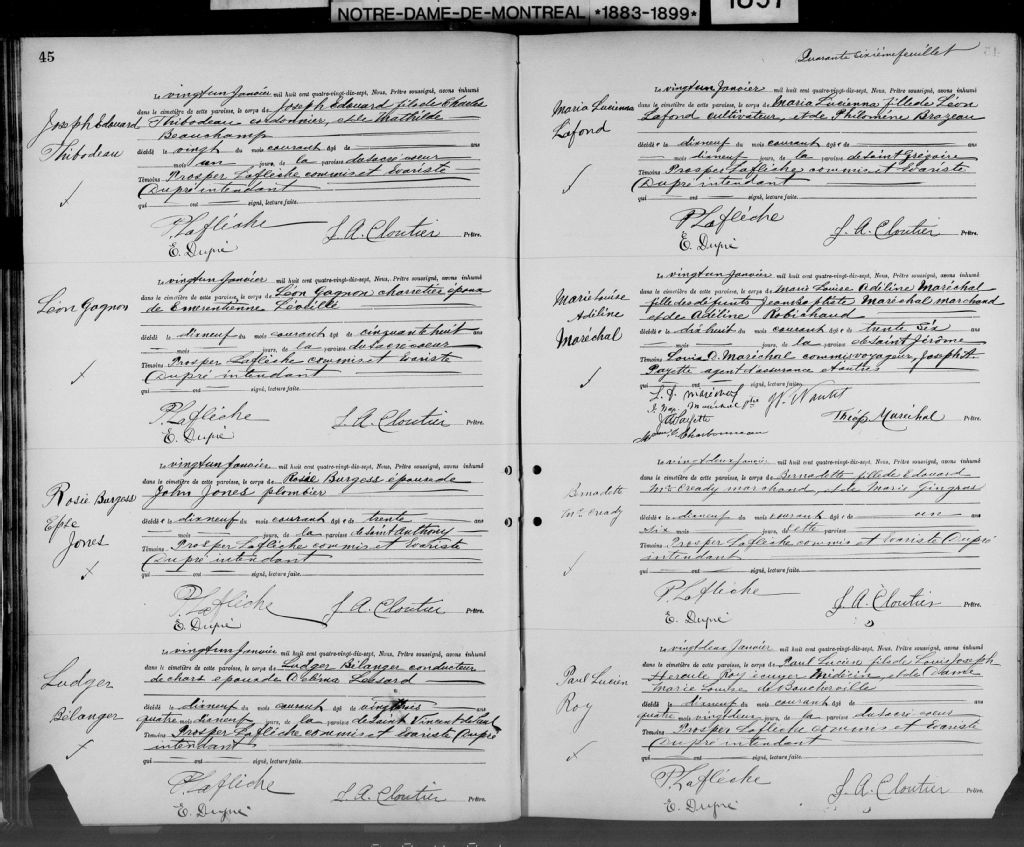 NOTRE-DAME-DE-MONTREAL *1883-1899*
1897
45
Joseph Edouard
Thibodeau
Le vingt un Janvier mil huit cent quatre-vingt-dix-sept, Nous, Prêtre soussigné, avons inhumé
dans le cimetière de cette paroisse, le corps de Joseph Edouard fils de Charles
Thibodeau cordonnier, et de Mathilde
Beauchamp
décédé le vingt du mois courant âgé de ans
mois un jours, de la paroisse du sacré coeur
Témoins Prosper Laflèche commis et Evariste
Dupré intendant
qui ont signé, lecture faite.
P. Laflèche
J. A. Cloutier Prêtre.
E. Dupré
Léon Gagnon
Le vingt un Janvier mil huit cent quatre-vingt-dix-sept, Nous, Prêtre soussigné, avons inhumé
dans le cimetière de cette paroisse, le corps de Léon Gagnon charretier époux
de Emérentienne Léveillé
décédé le dixneuf du mois courant âgé de cinquante huit ans
mois jours, de la paroisse du sacré coeur
Témoins Prosper Laflèche commis et Evariste
Dupré intendant
qui ont signé, lecture faite.
P. Laflèche
J. A. Cloutier Prêtre.
E. Dupré
Rosie Burgess
Epse
Jones
Le vingt un Janvier mil huit cent quatre-vingt-dix-sept, Nous, Prêtre soussigné, avons inhumé
dans le cimetière de cette paroisse, le corps de Rosie Burgess épouse de
John Jones plombier
décédée le dixneuf du mois courant âgée de trente ans
mois jours, de la paroisse de saint Anthony
Témoins Prosper Laflèche commis et Evariste
Dupré intendant
qui ont signé, lecture faite.
P. Laflèche
J. A. Cloutier Prêtre.
E. Dupré
Ludger
Bélanger
Le vingt un Janvier mil huit cent quatre-vingt-dix-sept, Nous, Prêtre soussigné, avons inhumé
dans le cimetière de cette paroisse, le corps de Ludger Bélanger conducteur
de chars époux de Lessard
décédé le dixneuf du mois courant âgé de vingt trois ans
quatre mois dixneuf jours, de la paroisse de Saint Vincent de Paul
Témoins Prosper Laflèche commis et Evariste Dupré
intendant
qui ont signé, lecture faite.
P. Laflèche
J. A. Cloutier Prêtre.
E. Dupré
Quarante sixième feuillet
Maria Lucienna
Lafond
Le vingt un Janvier mil huit cent quatre-vingt-dix-sept, Nous, Prêtre soussigné, avons inhumé
dans le cimetière de cette paroisse, le corps de Maria Lucienna fille de Léon
Lafond cultivateur, et de Philomène Brazeau
décédée le dixneuf du mois courant âgée de ans
mois dixneuf jours, de la paroisse de Saint Grégoire
Témoins Prosper Laflèche commis et Evariste
Dupré intendant
qui ont signé, lecture faite.
P. Laflèche
J. A. Cloutier Prêtre.
E. Dupré
Marie Louise
Adéline
Maréchal
Le vingt un Janvier mil huit cent quatre-vingt-dix-sept, Nous, Prêtre soussigné, avons inhumé
dans le cimetière de cette paroisse, le corps de Marie Louise Adéline Maréchal
fille des défunts Jean Baptiste Maréchal marchand
et de Adéline Robichaud
décédée le dix huit du mois courant âgée de trente six ans
mois jours, de la paroisse de saint Jérôme
Témoins Louis D. Maréchal commis voyageur, Joseph A.
Payette agent d'assurance et autres
qui ont signé, lecture faite.
L. D. Maréchal
Maréchal ptre
J A Payette
Charbonneau
Théop. Maréchal Prêtre.
Bernadette
McCready
Le vingt deux Janvier mil huit cent quatre-vingt-dix-sept, Nous, Prêtre soussigné, avons inhumé
dans le cimetière de cette paroisse, le corps de Bernadette fille de Edouard
McCready marchand, et de Marie Gingras
décédée le dixneuf du mois courant âgée de un an
six mois jours, de cette paroisse
Témoins Prosper Laflèche commis et Evariste Dupré
intendant
qui ont signé, lecture faite.
P. Laflèche
J. A. Cloutier Prêtre.
E. Dupré
Paul Lucien
Roy
Le vingt deux Janvier mil huit cent quatre-vingt-dix-sept, Nous, Prêtre soussigné, avons inhumé
dans le cimetière de cette paroisse, le corps de Paul Lucien fils de Louis Joseph
Hercule Roy écuyer Médecin, et de Dame
Marie Louise de Boucherville
décédé le dixneuf du mois courant âgé de ans
quatre mois vingt deux jours, de la paroisse du sacré coeur
Témoins Prosper Laflèche commis et Evariste
Dupré intendant
qui ont signé, lecture faite.
P. Laflèche
J. A. Cloutier Prêtre.
E. Dupré